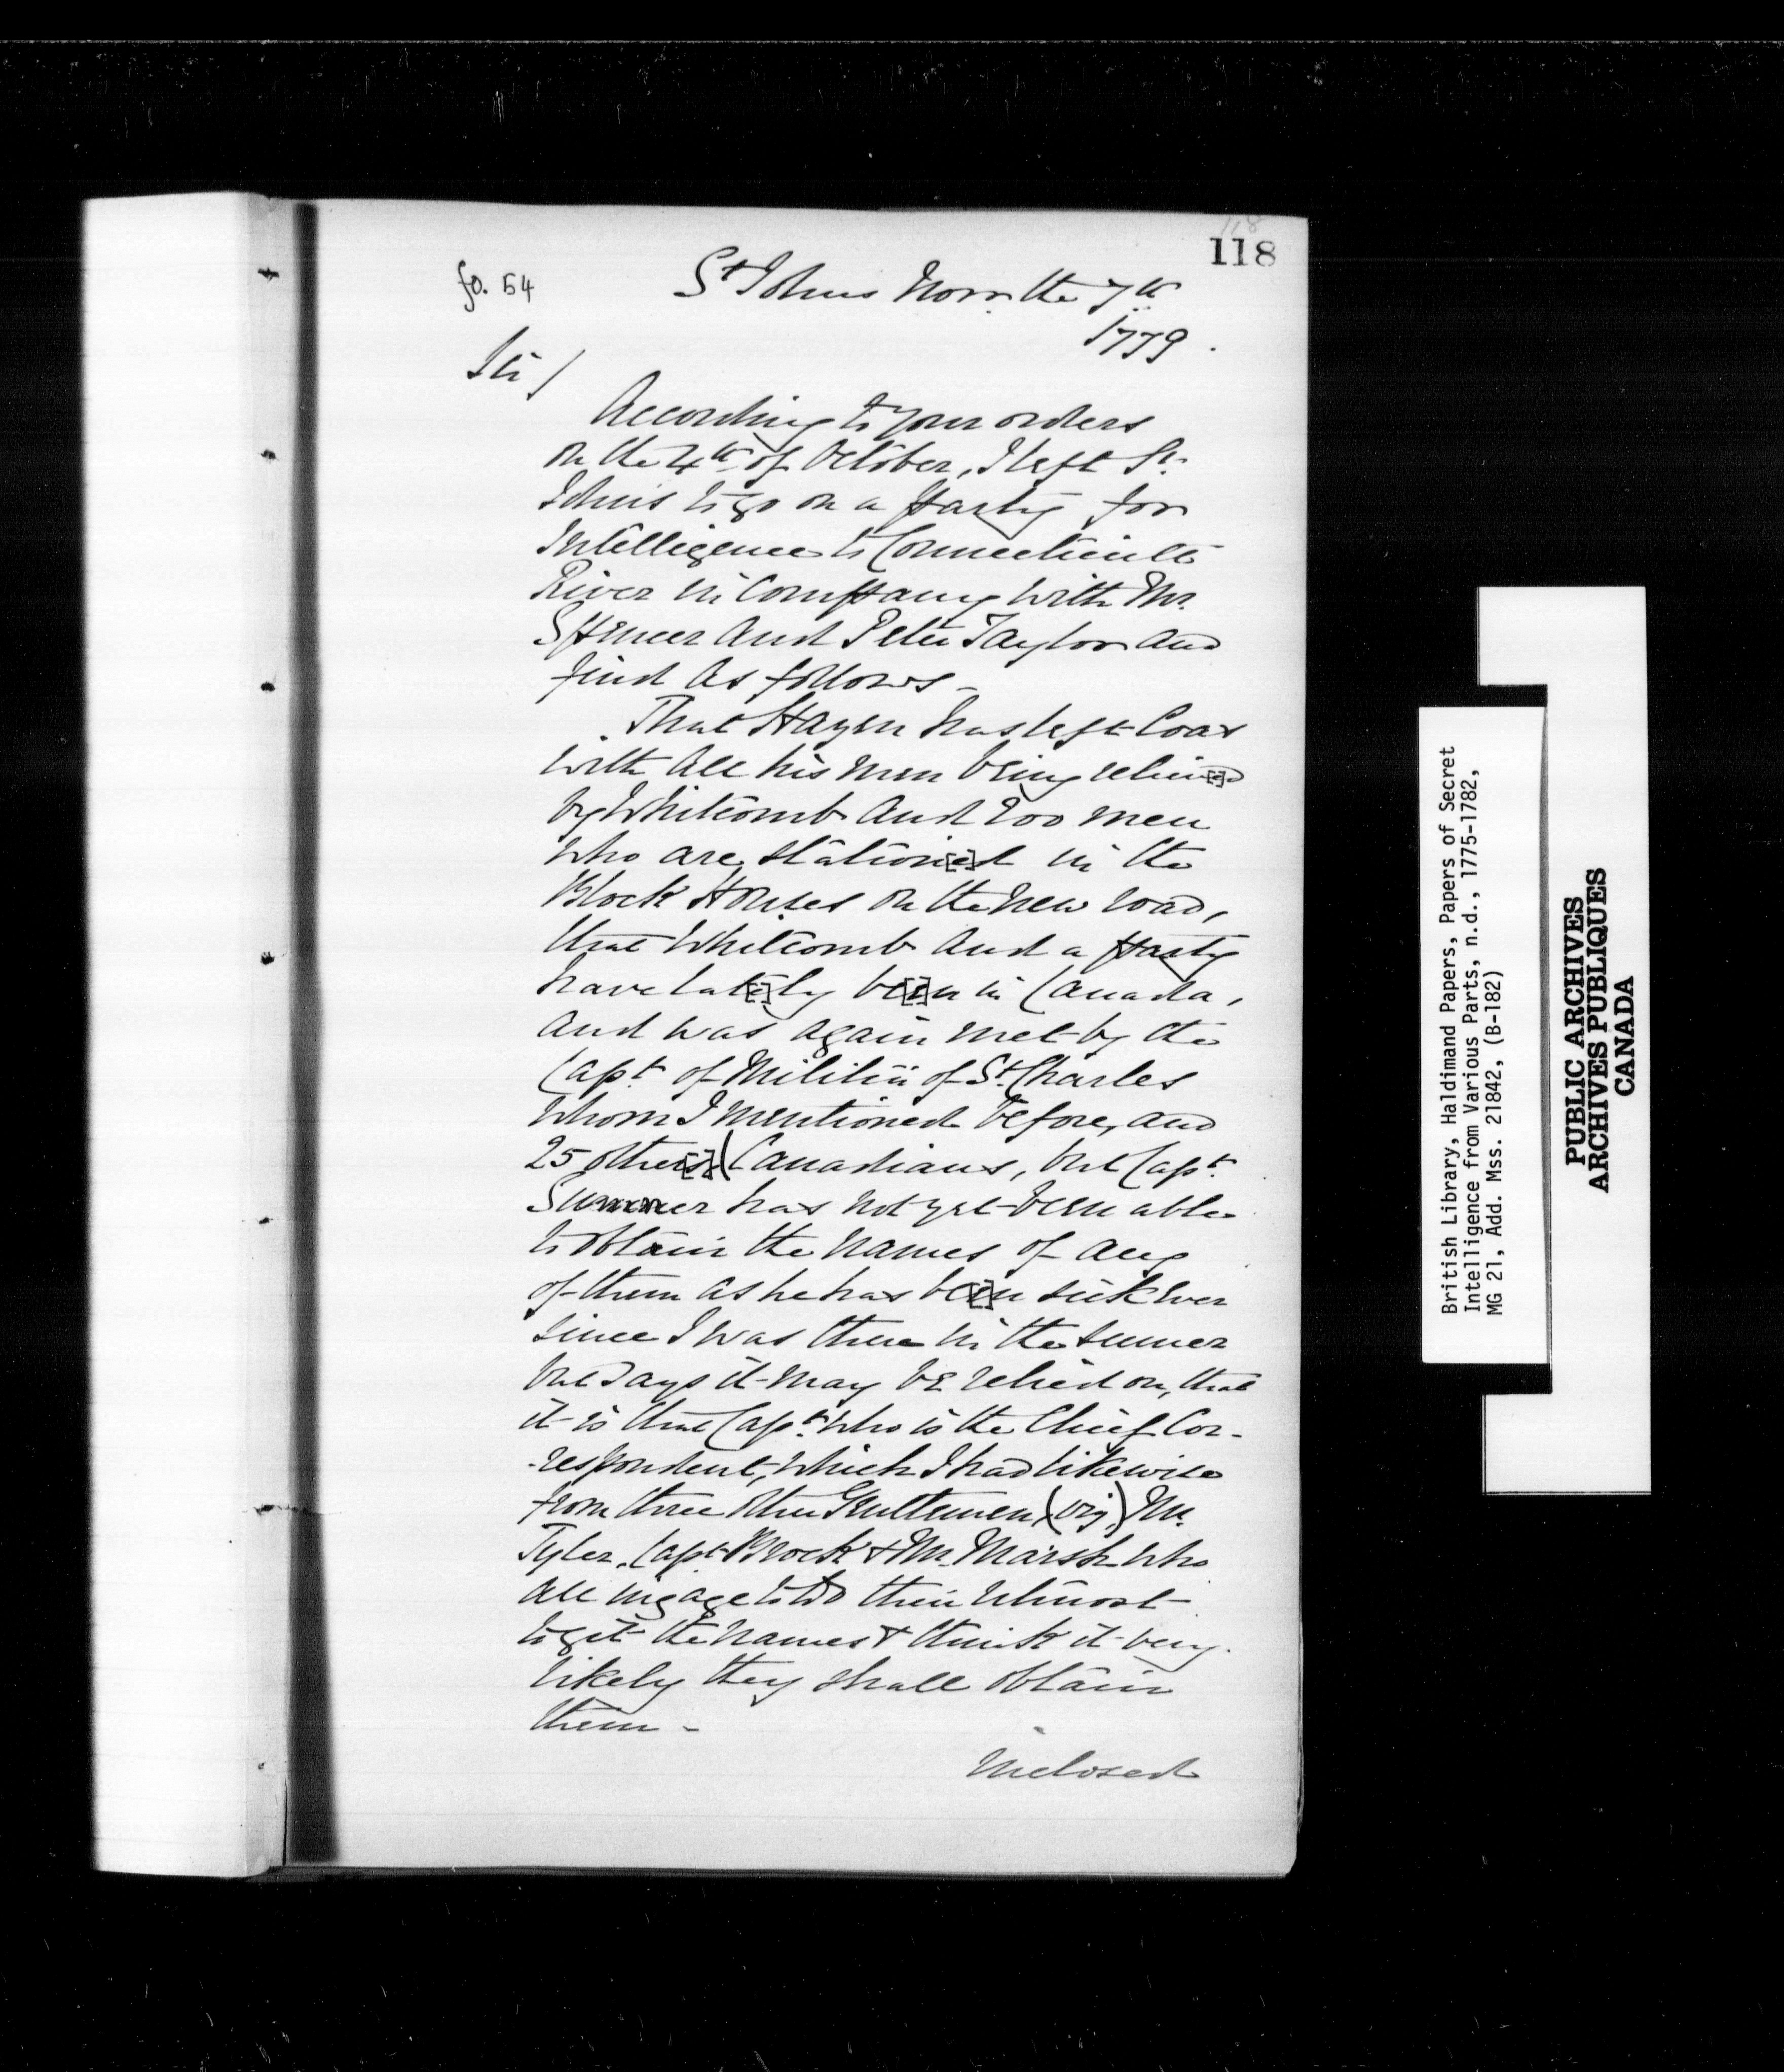 118
118
fo. 54
St Johns Novr. the 7th
1779.
Sir/
According to your orders
on the 4th of October, I left St.
Johns to go on a party for
Intelligence to Connecticutt
River in Company with Mr.
Spencer and Peter Taylor and
find as follows -
That Hazen has left Coas
with all his men being reliev[e]d
by Whitcomb and 200 men
who are station[e]d in the
Block Houses on the new road,
that Whitcomb and a party
have lat[e]ly be[e]n in Canada,
and was again met by the
Capt. of Militia of St. Charles
whom I mentioned before, and
25 other[s] Canadians, but Capt.
Sumner has not yet been able
to obtain the names of any
of them as he has be[e]n sick ever
since I was there in the summer
but says it may be relied on, that
it is that Capt. who is the Chief Cor-
-respondent, which I had likewise
from three other Gentlemen (viz) Mr.
Tyler, Capt. Brock & Mr. Marsh who
all ingage to do their utmost
to git the names & think it very
likely they shall obtain
them -
Inclosed
British Library, Haldimand Papers, Papers of Secret
Intelligence from Various Parts, n.d., 1775-1782,
MG 21, Add. Mss. 21842, (B-182)
PUBLIC ARCHIVES
ARCHIVES PUBLIQUES
CANADA